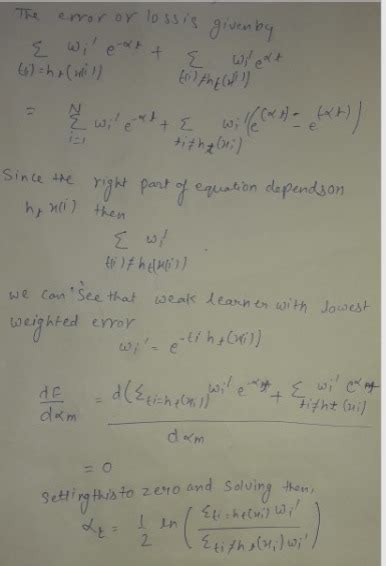 The error or loss is given by
Σ wi' e^-αt + Σ wi' e^αt
(ti)=ht(xi) (ti)≠ht(xi)
= N Σ i=1 wi' e^-αt + Σ ti≠ht(xi) wi' (e^(αt) - e^(-αt))
Since the right part of equation depends on
ht x(i) then
Σ wi'
(ti)≠ht(x(i))
we can see that weak learner with lowest
weighted error
wi' = e^-ti ht(xi)
dE/dαm = d(Σ ti=ht(xi) wi' e^-αt + Σ ti≠ht(xi) wi' e^αt)
dαm
= 0
Setting this to zero and solving then,
αt = 1/2 ln (Σ ti=ht(xi) wi' / Σ ti≠ht(xi) wi')